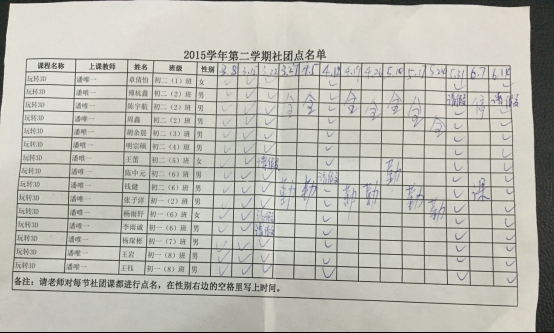 2015学年第二学期社团点名单
课程名称 上课教师 姓名 班级 性别 3.8 3.15 3.22 3.29 4.5 4.12 4.19 4.26 5.10 5.17 5.24 5.31 6.7 6.14
玩转3D 潘唯一 章倩怡 初二（1）班 女
玩转3D 潘唯一 傅杭鑫 初二（2）班 男 请假 停 请假
玩转3D 潘唯一 陈宇航 初二（2）班 男 全 全 全 全 全 全 全
玩转3D 潘唯一 周鑫 初二（2）班 男
玩转3D 潘唯一 胡余晨 初二（3）班 男
玩转3D 潘唯一 明宗硕 初二（4）班 男
玩转3D 潘唯一 王蕾 初二（5）班 女 请假
玩转3D 潘唯一 陈中元 初二（6）班 男 请假 勤
玩转3D 潘唯一 钱健 初二（6）班 男 勤 勤 勤 勤 勤 勤 课
玩转3D 潘唯一 张子涛 初一（2）班 男
玩转3D 潘唯一 杨雨婷 初一（6）班 女 请假
玩转3D 潘唯一 李雨诚 初一（6）班 男 请假
玩转3D 潘唯一 杨琛彬 初一（7）班 男
玩转3D 潘唯一 王岩 初一（8）班 男
玩转3D 潘唯一 王钰 初一（8）班 男
备注：请老师对每节社团课都进行点名，在性别右边的空格里写上时间。